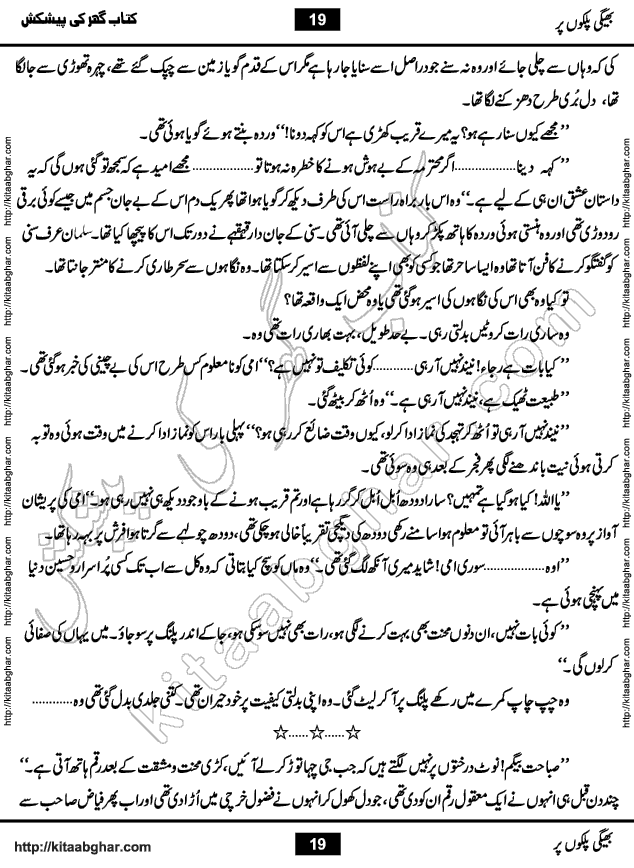 کتاب گھر کی پیشکش 19 بھیگی پلکوں پر
کی کہ وہاں سے چلی جائے اور وہ نہ سنے جو دراصل اسے سنایا جا رہا ہے مگر اس کے قدم گویا زمین سے چپک گئے تھے، چہرہ تھوڑی سے جا لگا
تھا، دل بُری طرح دھڑکنے لگا تھا۔
’’ مجھے کیوں سنا رہے ہو؟ یہ میرے قریب کھڑی ہے اس کو کہہ دو نا!‘‘ وردہ بنتے ہوئے گویا ہوئی تھی۔
’’ کہہ دینا.................. اگر محترمہ کے بے ہوش ہونے کا خطرہ نہ ہوتا تو .................. مجھے امید ہے کہ سمجھ تو گئی ہوں گی کہ یہ
داستان عشق ان ہی کے لیے ہے۔‘‘ وہ اس بار براہ راست اس کی طرف دیکھ کر گویا ہوا تھا پھر یک دم اس کے بے جان جسم میں جیسے کوئی برقی
رو دوڑی تھی اور وہ ہنستی ہوئی وردہ کا ہاتھ پکڑ کر وہاں سے چلی آئی تھی۔ سنی کے جان دار قہقہے نے دور تک اس کا پیچھا کیا تھا۔ سلمان عرف سنی
کو گفتگو کرنے کا فن آتا تھا وہ ایسا ساحر تھا جو کسی کو بھی اپنے لفظوں سے اسیر کر سکتا تھا۔ وہ نگاہوں سے سحر طاری کرنے کا منتر جانتا تھا۔
تو کیا وہ بھی اس کی نگاہوں کی اسیر ہو گئی تھی یا وہ محض ایک واقعہ تھا؟
وہ ساری رات کروٹیں بدلتی رہی۔ بے حد طویل، بہت بھاری رات تھی وہ۔
’’ کیا بات ہے رجاء! نیند نہیں آ رہی ............ کوئی تکلیف تو نہیں ہے؟‘‘ امی کو نا معلوم کس طرح اس کی بے چینی کی خبر ہو گئی تھی۔
’’ طبیعت ٹھیک ہے، نیند نہیں آ رہی ہے۔‘‘ وہ اُٹھ کر بیٹھ گئی۔
’’ نیند نہیں آ رہی تو اُٹھ کر تہجد کی نماز ادا کر لو، کیوں وقت ضائع کر رہی ہو؟‘‘ پہلی بار اس کو نماز ادا کرنے میں وقت ہوئی وہ توبہ
کرتی ہوئی نیت باندھنے لگی پھر فجر کے بعد ہی وہ سوئی تھی۔
’’ یا اللہ! کیا ہو گیا ہے تمہیں؟ سارا دودھ اُبل اُبل کر گر رہا ہے اور تم قریب ہونے کے باوجود دیکھ ہی نہیں رہی ہو۔‘‘ امی کی پریشان
آواز پر وہ سوچوں سے باہر آئی تو معلوم ہوا سامنے رکھی دودھ کی دیگچی تقریباً خالی ہو چکی تھی، دودھ چولہے سے گرتا ہوا فرش پر بہہ رہا تھا۔
’’ اوہ .................. سوری امی! شاید میری آنکھ لگ گئی تھی۔‘‘ وہ ماں کو سچ کیا بتاتی کہ وہ کل سے اب تک کسی پُر اسرار و حسین دنیا
میں پہنچی ہوئی ہے۔
’’ کوئی بات نہیں، ان دنوں محنت بھی بہت کرنے لگی ہو، رات بھی نہیں سو سکی ہو، جا کے اندر پلنگ پر سو جاؤ۔ میں یہاں کی صفائی
کر لوں گی۔‘‘
وہ چپ چاپ کمرے میں رکھے پلنگ پر آ کر لیٹ گئی۔ وہ اپنی بدلتی کیفیت پر خود حیران تھی۔ کتنی جلدی بدل گئی تھی وہ ............
☆......☆......☆
’’ صباحت بیگم! نوٹ درختوں پر نہیں لگتے ہیں کہ جب جی چہا توڑ کر لے آئیں، کڑی محنت و مشقت کے بعد رقم ہاتھ آتی ہے۔‘‘
چند دن قبل ہی انہوں نے ایک معقول رقم ان کو دی تھی، جو دل کھول کر انہوں نے فضول خرچی میں اُڑا دی تھی اور اب پھر فیاض صاحب سے
http://kitaabghar.com 19 بھیگی پلکوں پر
http://kitaabghar.com http://kitaabghar.com http://kitaabghar.com http://kitaabghar.com http://kitaabghar.com http://kitaabghar.com
http://kitaabghar.com http://kitaabghar.com http://kitaabghar.com http://kitaabghar.com http://kitaabghar.com http://kitaabghar.com
کتاب گھر کی پیشکش
kitaabghar.com